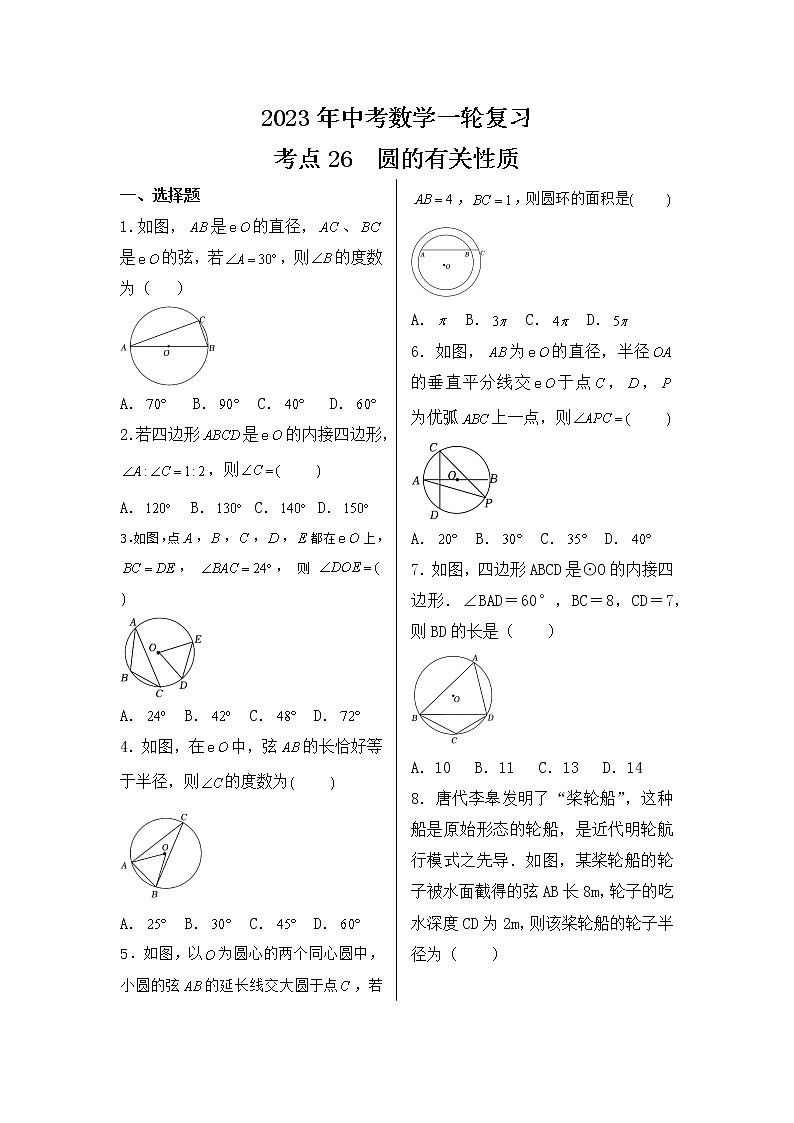 2023 年中考数学一轮复习
考点 26 圆的有关性质
一、选择题
1.如图，AB是e O的直径，AC、BC
是e O的弦,若∠A＝30°,则∠B的度数
为（ ）
C
A
O
B
A. 70° B. 90° C. 40° D. 60°
2.若四边形ABCD是e O的内接四边形,
∠A:∠C＝1:2，则∠C＝( )
A. 120° B. 130° C. 140° D. 150°
3.如图,点A，B，C，D，E都在e O上，
BC＝DE，∠BAC＝24°，则 ∠DOE＝(
)
A
E
O
B
C
D
A. 24° B. 42° C. 48° D. 72°
4. 如图，在e O中，弦AB的长恰好等
于半径，则∠C的度数为( )
C
O
A
B
A. 25° B. 30° C. 45° D. 60°
5．如图，以O为圆心的两个同心圆中，
小圆的弦AB的延长线交大圆于点C，若
AB＝4，BC＝1,则圆环的面积是( )
A
B
C
O
A. π B. 3π C. 4π D. 5π
6. 如图，AB为e O的直径，半径OA
的垂直平分线交e O于点C，D，P
为优弧ABC上一点，则∠APC＝( )
C
A
O
B
P
D
A. 20° B. 30° C. 35° D. 40°
7. 如图，四边形ABCD是⊙O的内接四
边形．∠BAD＝60°，BC＝8，CD＝7，
则BD的长是（ ）
A
O
B
D
C
A．10 B．11 C．13 D．14
8．唐代李皋发明了“桨轮船”，这种
船是原始形态的轮船，是近代明轮航
行模式之先导．如图，某桨轮船的轮
子被水面截得的弦AB长8m,轮子的吃
水深度CD为2m,则该桨轮船的轮子半
径为（ ）